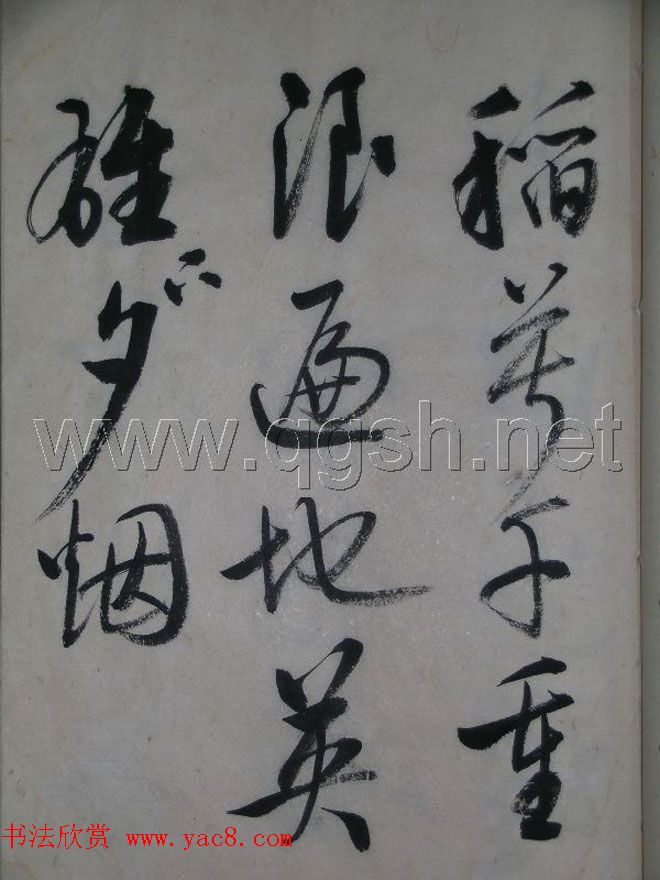 稻菽千重
浪遍地英
雄下夕烟
www.qgsh.net
书法欣赏 www.yac8.com